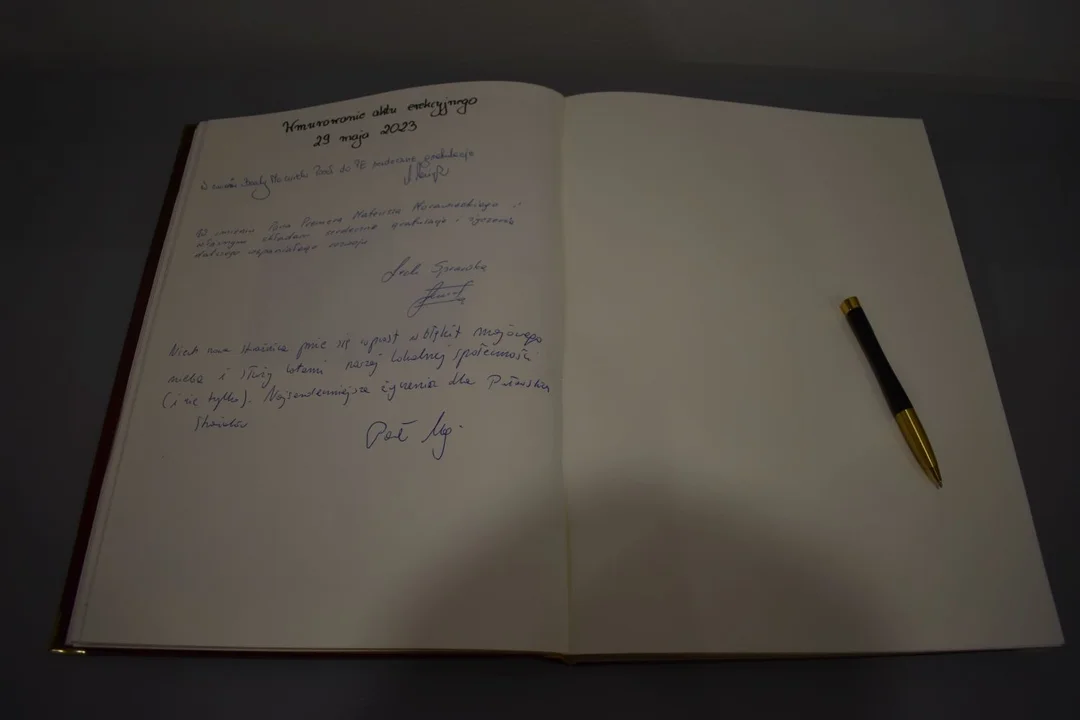 Wmurowanie aktu erekcyjnego
29 maja 2023
W imieniu do PE serdeczne gratulacje
W imieniu Pana Premiera Mateusza Morawieckiego i
własnym składam serdeczne gratulacje i życzenia
dalszego wspaniałego rozwoju
Lech Sprawka
Niech nowa strażnica pnie się wprost w błękit majowego
nieba i służy latami naszej lokalnej społeczności
(i nie tylko). Najserdeczniejsze życzenia dla
Strażaków